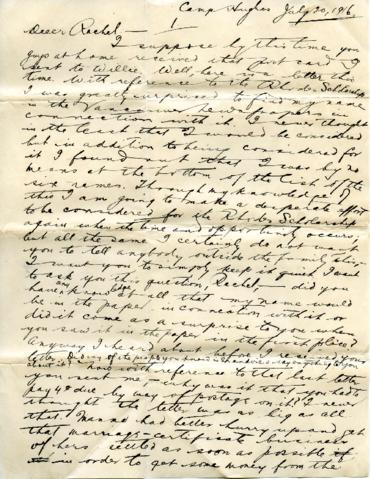 Camp Hughes July 20, 1916.
Dear Rachel —
I suppose by this time you
guys at home received that post card I
sent to Willie. Well, here is a letter this
time. With reference to the Rhodes Scholarship
I was greatly surprised to find my name
in the Vancouver newspapers in
connection with it. I never thought
in the least that I would be considered
but in addition to being considered for
it I found out that I was by no
means at the bottom of the list of the
six names. Through my knowledge of
this I am going to make a desperate effort
to be considered for the Rhodes Scholarship
again when the time and opportunity occurs,
but all the same I certainly do not want
you to tell anybody outside the family this.
I want you to simply keep it quiet. I want
to ask you this question, Rachel, — did you
have any knowledge at all that my name would
be in the paper in connection with it or
did it come as a surprise to you when
you saw it in the paper in the first place?
Anyway I heard about it before I received your
letter.
about it. Now with reference to that last letter
you sent me, — why was it that you had to
pay 4¢ due by way of postage on it? I never
thought the letter was as big as all
that. Mamma had better hurry up and get
that marriage-certificate business
of hers settled as soon as possible
in order to get some money from the